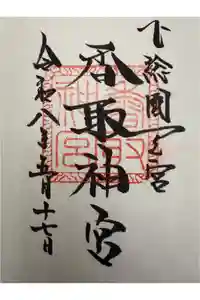 下総國一之宮
香取神宮
令和八年月十七日
香取
神宮